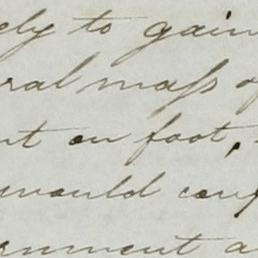 ely to gain
ral mass o
nt on foot,
would conf
ernment a